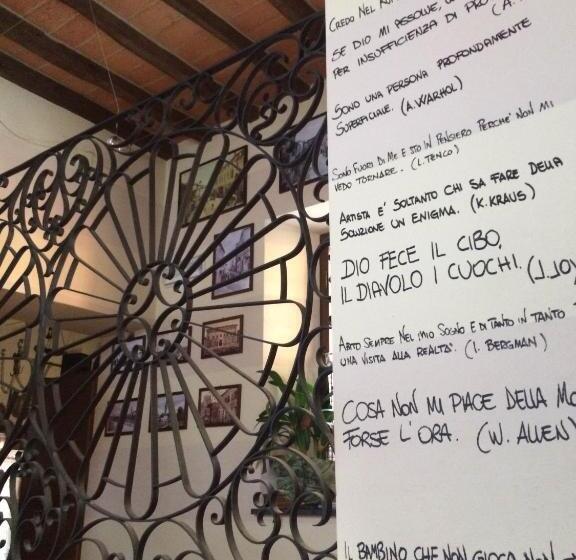 CREDO NEL
SE DIO MI ASSOLVE,
PER INSUFFICIENZA DI
SONO UNA PERSONA PROFONDAMENTE
SUPERFICIALE. (A. WARHOL)
SONO FUORI DI ME E STO IN PENSIERO PERCHE' NON MI
VEDO TORNARE. (L. TENCO)
ARTISTA E' SOLTANTO CHI SA FARE DELLA
SOLUZIONE UN ENIGMA. (K. KRAUS)
DIO FECE IL CIBO,
IL DIAVOLO I CUOCHI. (J. JOY
SEMPRE NEL MIO SOGNO E DI TANTO IN TANTO
UNA VISITA ALLA REALTA'. (I. BERGMAN)
COSA NON MI PIACE DELLA MO
FORSE L'ORA. (W. ALLEN)
IL BAMBINO CHE NON GIOCA NON